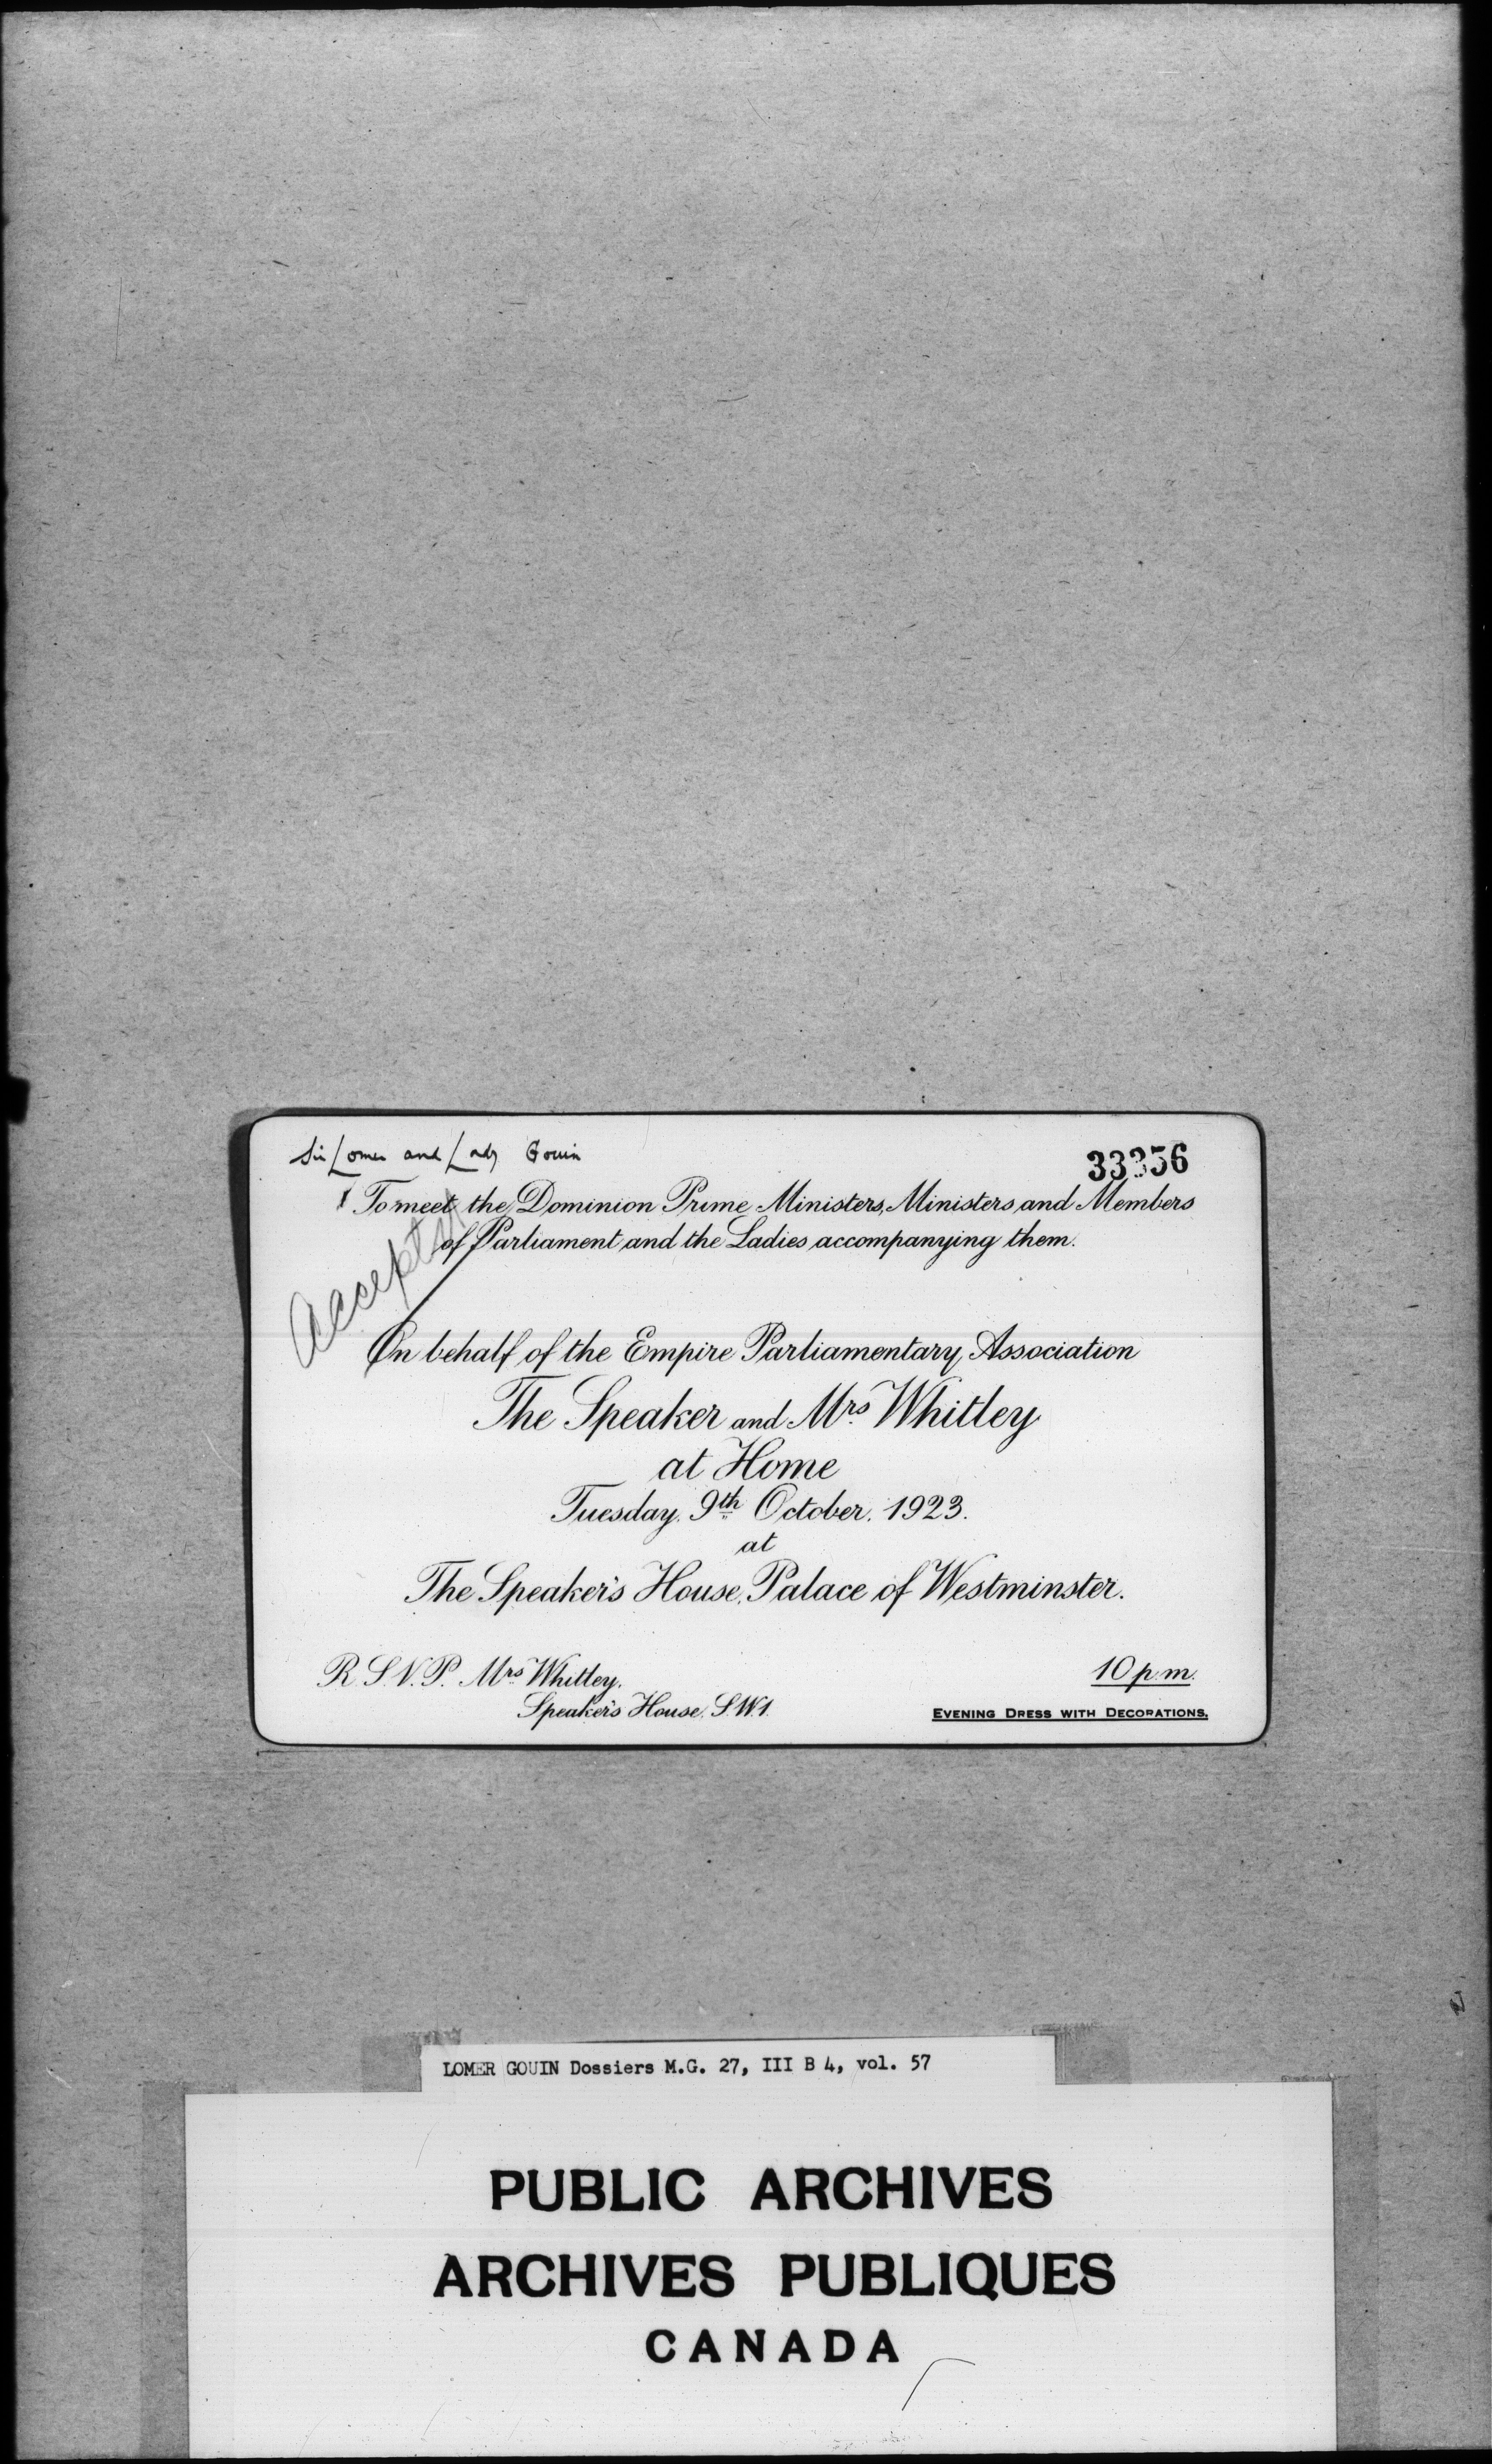 Sir Lomer and Lady Gouin
33356
To meet the Dominion Prime Ministers, Ministers and Members
of Parliament and the Ladies accompanying them.
Accepted
On behalf of the Empire Parliamentary Association
The Speaker and Mrs. Whitley
at Home
Tuesday, 9th October, 1923.
at
The Speaker's House, Palace of Westminster.
R.S.V.P. Mrs. Whitley,
Speaker's House, S.W.1.
10 p.m.
EVENING DRESS WITH DECORATIONS.
LOMER GOUIN Dossiers M.G. 27, III B 4, vol. 57
PUBLIC ARCHIVES
ARCHIVES PUBLIQUES
CANADA